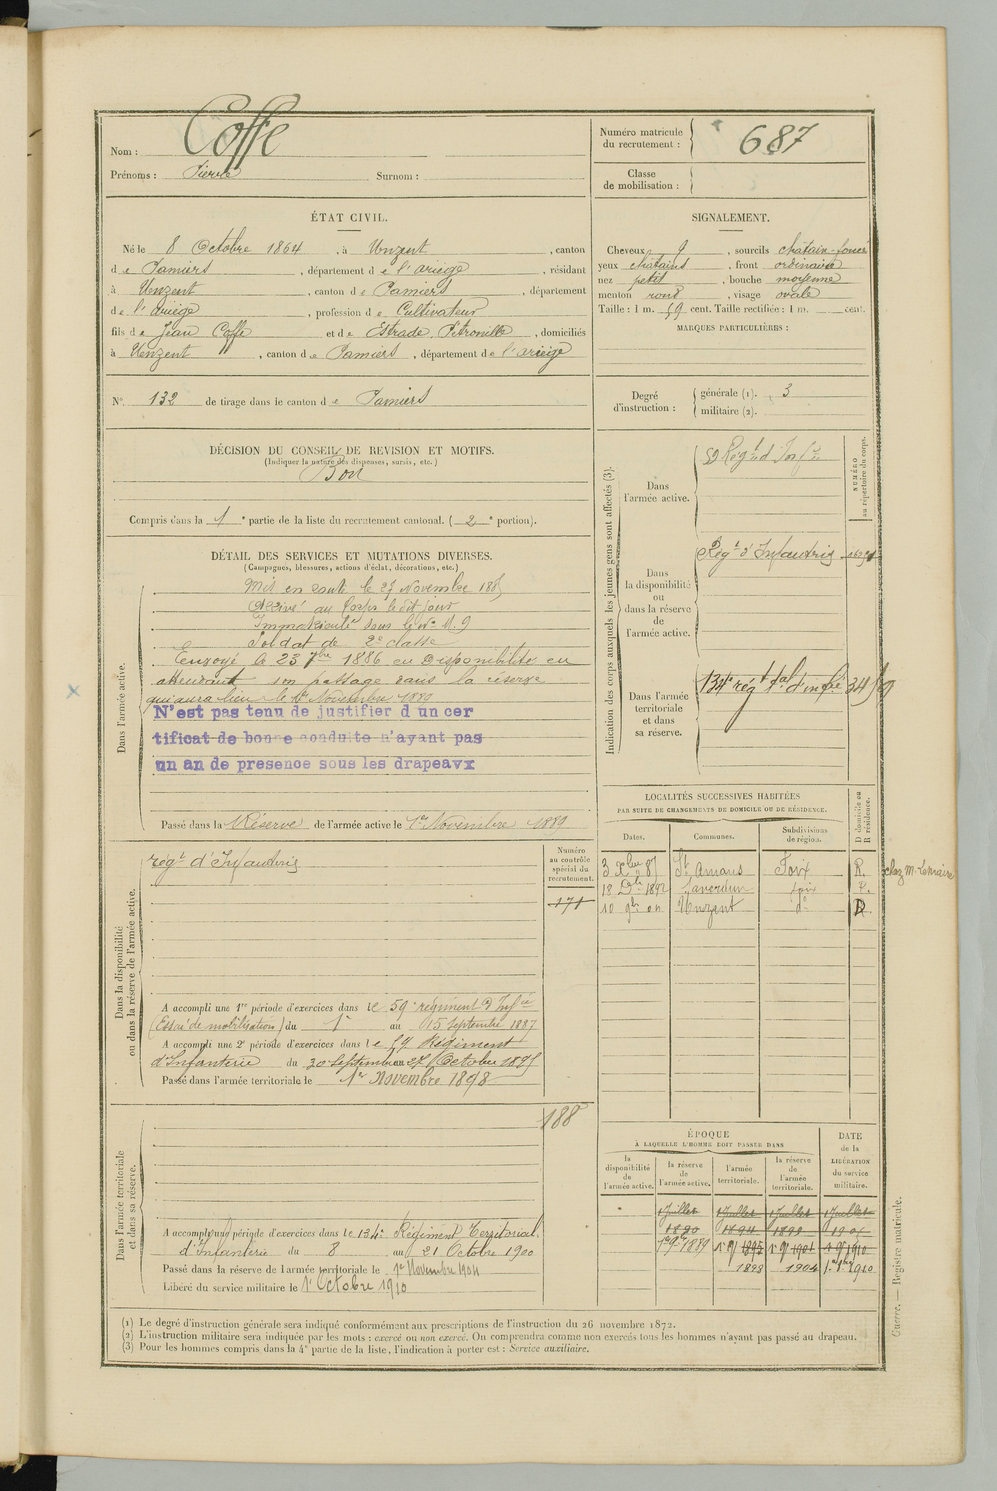 Nom : Coffe
Prénoms : Pierre Surnom :
Numéro matricule du recrutement : 687
Classe de mobilisation :
ÉTAT CIVIL.
Né le 8 Octobre 1864, à Unzent, canton
de Pamiers, département de l'ariège, résidant
à Unzent, canton de Pamiers, département
de l'ariège, profession de Cultivateur
fils de Jean Coffe et de Estrade, Pétronille, domiciliés
à Unzent, canton de Pamiers, département de l'ariège
N° 132 de tirage dans le canton de Pamiers
SIGNALEMENT.
Cheveux, sourcils chatain-foncé
yeux chatains, front ordinaire
nez petit, bouche moyenne
menton rond, visage ovale
Taille : 1 m. 59 cent. Taille rectifiée : 1 m. cent.
MARQUES PARTICULIÈRES :
Degré d'instruction : générale (1). 3
militaire (2).
DÉCISION DU CONSEIL DE REVISION ET MOTIFS.
(Indiquer la nature des dispenses, sursis, etc.)
Bon
Compris dans la 1e partie de la liste du recrutement cantonal. (2e portion).
DÉTAIL DES SERVICES ET MUTATIONS DIVERSES.
(Campagnes, blessures, actions d'éclat, décorations, etc.)
Dans l'armée active.
Mis en route le 27 Novembre 1885
Arrivé au Corps le dit jour
Immatriculé sous le N°
Soldat de 2e classe
Envoyé le 23 7bre 1886 en Disponibilité en
attendant son passage dans la réserve
qui aura lieu le 1er Novembre 1889
N'est pas tenu de justifier d un cer
tificat de bonne conduite n'ayant pas
un an de presence sous les drapeaux
Passé dans la Réserve de l'armée active le 1er Novembre 1889
Indication des corps auxquels les jeunes gens sont affectés (3).
NUMÉRO au répertoire du corps.
Dans l'armée active. 59 Régt d'Infie
Dans la disponibilité ou dans la réserve de l'armée active. Régt d'Infanterie
Dans l'armée territoriale et dans sa réserve. 134e régt tal d'infie
LOCALITÉS SUCCESSIVES HABITÉES
PAR SUITE DE CHANGEMENTS DE DOMICILE OU DE RÉSIDENCE.
D domicile ou R résidence.
Dates. Communes. Subdivisions de région.
87 St Amans Foix R. chez M. Lemaire
18 1892 Saverdun foix R.
10 9bre 04 Unzent do D
Dans la disponibilité ou dans la réserve de l'armée active.
régt d'Infanterie
Numéro au contrôle spécial du recrutement.
171
A accompli une 1re période d'exercices dans le 59e régiment d'Infie
(Essai de mobilisation) du 1er au 15 Septembre 1887
A accompli une 2e période d'exercices dans le 59 Régiment
d'Infanterie du 30 Septembre au 27 Octobre 1891
Passé dans l'armée territoriale le 1er Novembre 1898
Dans l'armée territoriale et dans sa réserve.
188
A accompli une période d'exercices dans le 134e Régiment Territorial
d'Infanterie du 8 au 21 Octobre 1900
Passé dans la réserve de l'armée territoriale le 1er Novembre 1904
Libéré du service militaire le 1er Octobre 1910
ÉPOQUE
À LAQUELLE L'HOMME DOIT PASSER DANS
DATE de la LIBÉRATION du service militaire.
la disponibilité de l'armée active. la réserve de l'armée active. l'armée territoriale. la réserve de l'armée territoriale.
1 Juillet 1 Juillet 1 Juillet 1 Juillet
1890
1889 1895 1904 1910
1898 1904 1910
(1) Le degré d'instruction générale sera indiqué conformément aux prescriptions de l'instruction du 26 novembre 1872.
(2) L'instruction militaire sera indiquée par les mots : exercé ou non exercé. On comprendra comme non exercés tous les hommes n'ayant pas passé au drapeau.
(3) Pour les hommes compris dans la 4e partie de la liste, l'indication à porter est : Service auxiliaire.
Guerre. — Registre matricule.